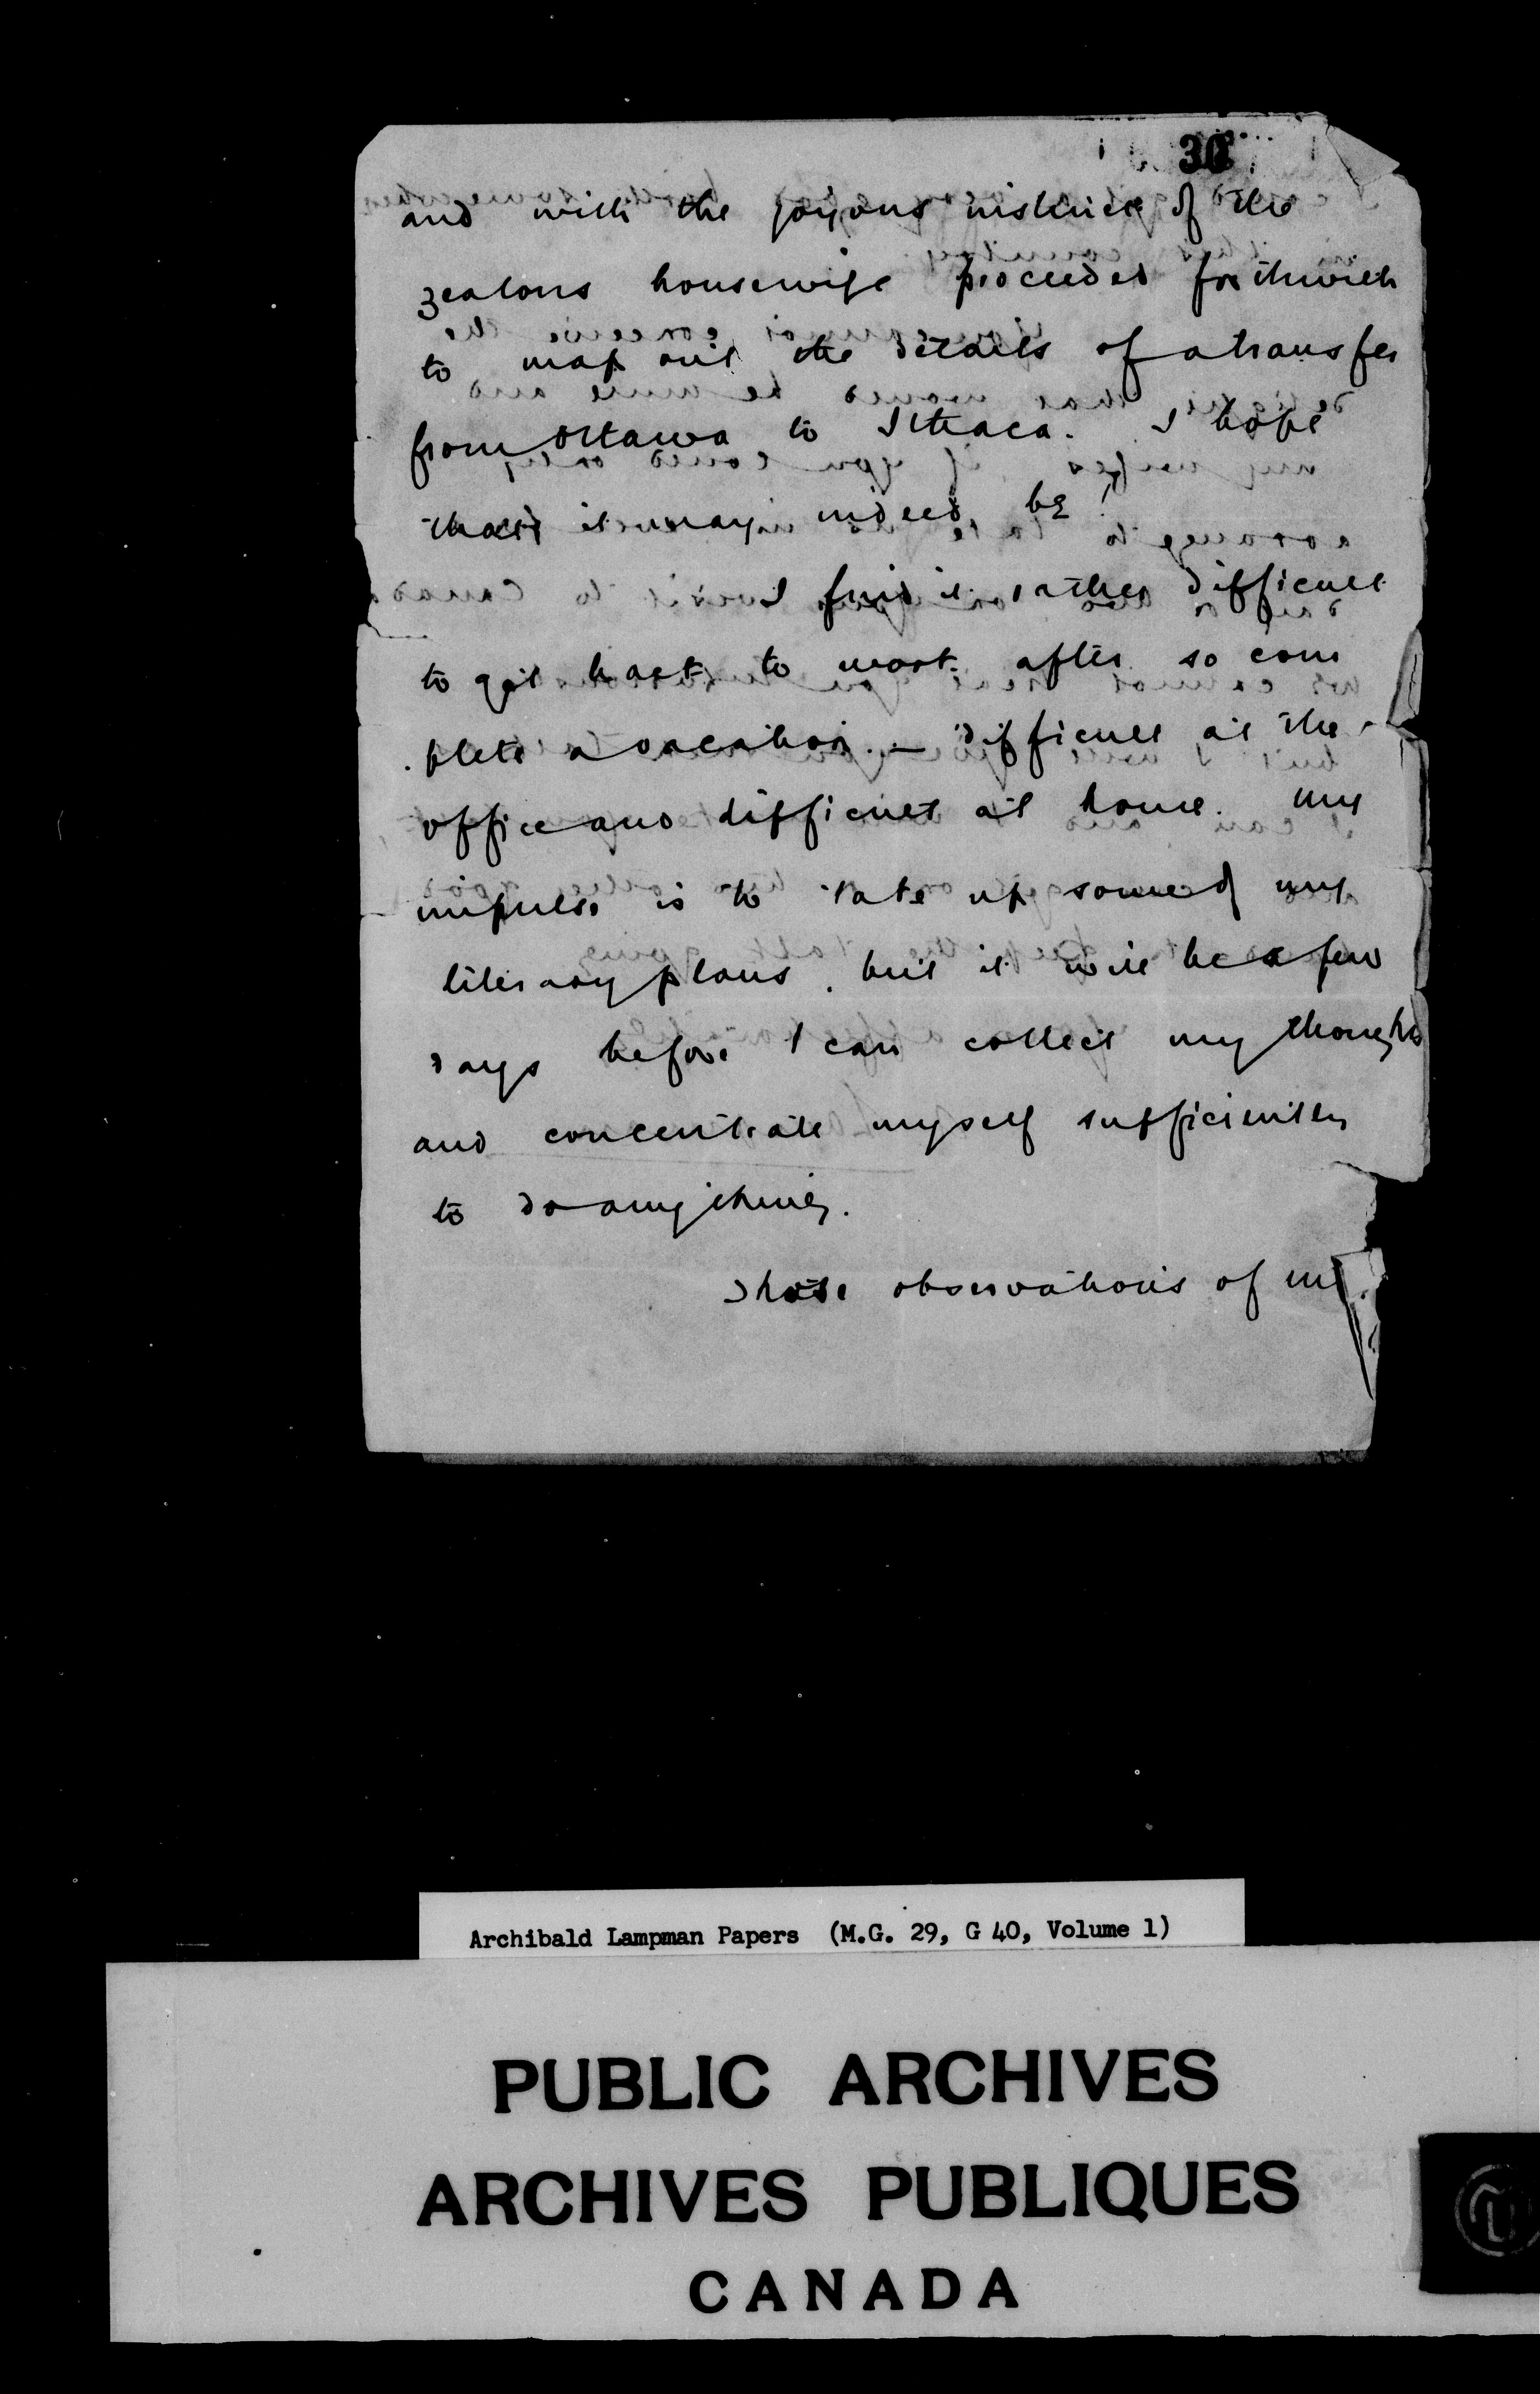 30
and with the joyous instinct of the
zealous housewife proceeded forthwith
to map out the details of a transfer
from Ottawa to Ithaca. I hope
that it may indeed be!
I find it rather difficult
to get back to work after so com
plete a vacation — difficult at the
office and difficult at home. My
impulse is to take up some of my
literary plans, but it will be a few
days before I can collect my thoughts
and concentrate myself sufficiently
to do anything.
Those observations of my
Archibald Lampman Papers (M.G. 29, G 40, Volume 1)
PUBLIC ARCHIVES
ARCHIVES PUBLIQUES
CANADA